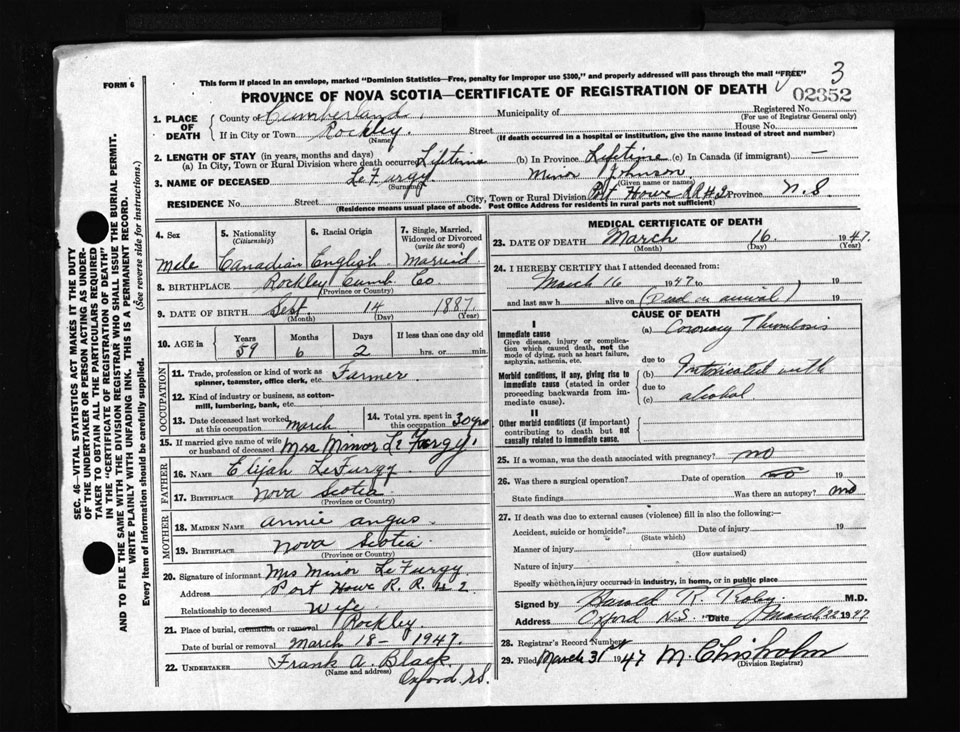 3
FORM 6
This form if placed in an envelope, marked "Dominion Statistics—Free, penalty for improper use $300," and properly addressed will pass through the mail "FREE"
PROVINCE OF NOVA SCOTIA—CERTIFICATE OF REGISTRATION OF DEATH
02352
1. PLACE OF DEATH
County of Cumberland
Municipality of
Registered No.
(For use of Registrar General only)
If in City or Town Rockley
(Name)
Street
House No.
(If death occurred in a hospital or institution, give the name instead of street and number)
2. LENGTH OF STAY (in years, months and days)
(a) In City, Town or Rural Division where death occurred Lifetime (b) In Province Lifetime (c) In Canada (if immigrant) —
3. NAME OF DECEASED LeFurgy Minor Johnson
(Surname) (Given name or names)
RESIDENCE No. Street City, Town or Rural Division Port Howe RR#2 Province N.S
(Residence means usual place of abode. Post Office Address for residents in rural parts not sufficient)
4. Sex
Male
5. Nationality
(Citizenship)
Canadian
6. Racial Origin
English
7. Single, Married, Widowed or Divorced
(write the word)
Married
8. BIRTHPLACE Rockley Cumb. Co.
(Province or Country)
9. DATE OF BIRTH Sept. 14 1887
(Month) (Day) (Year)
10. AGE in
Years Months Days If less than one day old
59 6 2 hrs. or min.
OCCUPATION
11. Trade, profession or kind of work as spinner, teamster, office clerk, etc. Farmer
12. Kind of industry or business, as cotton-mill, lumbering, bank, etc.
13. Date deceased last worked at this occupation March
14. Total yrs. spent in this occupation 30 yrs
15. If married give name of wife or husband of deceased Mrs Minor LeFurgy
FATHER
16. NAME Elijah LeFurgy
17. BIRTHPLACE Nova Scotia
(Province or Country)
MOTHER
18. MAIDEN NAME Annie Angus
19. BIRTHPLACE Nova Scotia
(Province or Country)
20. Signature of informant Mrs Minor LeFurgy
Address Port Howe R. R. #2
Relationship to deceased Wife
21. Place of burial, cremation or removal Rockley
Date of burial or removal March 18 – 1947
22. UNDERTAKER Frank A. Black
(Name and address)
Oxford N.S.
MEDICAL CERTIFICATE OF DEATH
23. DATE OF DEATH March 16 1947
(Month) (Day) (Year)
24. I HEREBY CERTIFY that I attended deceased from:
March 16 1947 to 19
and last saw h alive on (Dead on arrival) 19
CAUSE OF DEATH
I
Immediate cause
Give disease, injury or complication which caused death, not the mode of dying, such as heart failure, asphyxia, asthenia, etc.
(a) Coronary Thrombosis
due to
Morbid conditions, if any, giving rise to immediate cause (stated in order proceeding backwards from immediate cause).
(b) Intoxicated with
due to
(c) alcohol
II
Other morbid conditions (if important) contributing to death but not causally related to immediate cause.
25. If a woman, was the death associated with pregnancy? no
26. Was there a surgical operation? Date of operation no 19
State findings Was there an autopsy? no
27. If death was due to external causes (violence) fill in also the following:—
Accident, suicide or homicide? Date of injury 19
(State which)
Manner of injury
(How sustained)
Nature of injury
Specify whether injury occurred in industry, in home, or in public place
Signed by Harold R. Roby M.D.
Address Oxford N.S. Date March 22 1947
28. Registrar's Record Number
29. Filed March 31st 1947 M. Chisholm
(Division Registrar)
SEC. 46—VITAL STATISTICS ACT MAKES IT THE DUTY
OF THE UNDERTAKER OR PERSON ACTING AS UNDER-
TAKER TO OBTAIN ALL THE PARTICULARS REQUIRED
IN THE "CERTIFICATE OF REGISTRATION OF DEATH"
AND TO FILE THE SAME WITH THE DIVISION REGISTRAR WHO SHALL ISSUE THE BURIAL PERMIT.
WRITE PLAINLY WITH UNFADING INK. THIS IS A PERMANENT RECORD.
Every item of information should be carefully supplied. (See reverse side for instructions.)